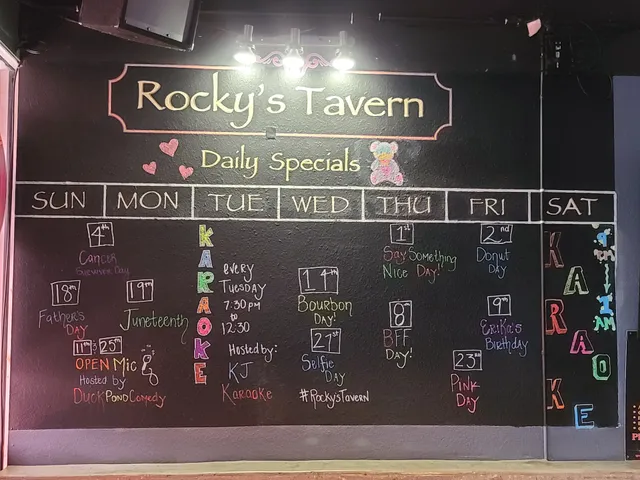 Rocky's Tavern
Daily Specials
SUN MON TUE WED THU FRI SAT
4th
Cancer
Survivor Day
18th
Father's
Day
19th
Juneteenth
11th & 25th
OPEN Mic
Hosted by
Duck Pond Comedy
KARAOKE
every
Tuesday
7:30 pm
to
12:30
Hosted by:
KJ
Karaoke
14th
Bourbon
Day!
21st
Selfie
Day
#RockysTavern
1st
Say Something
Nice Day!
8
BFF
Day!
2nd
Donut
Day
9th
Erika's
Birthday
23rd
Pink
Day
KARAOKE
1AM